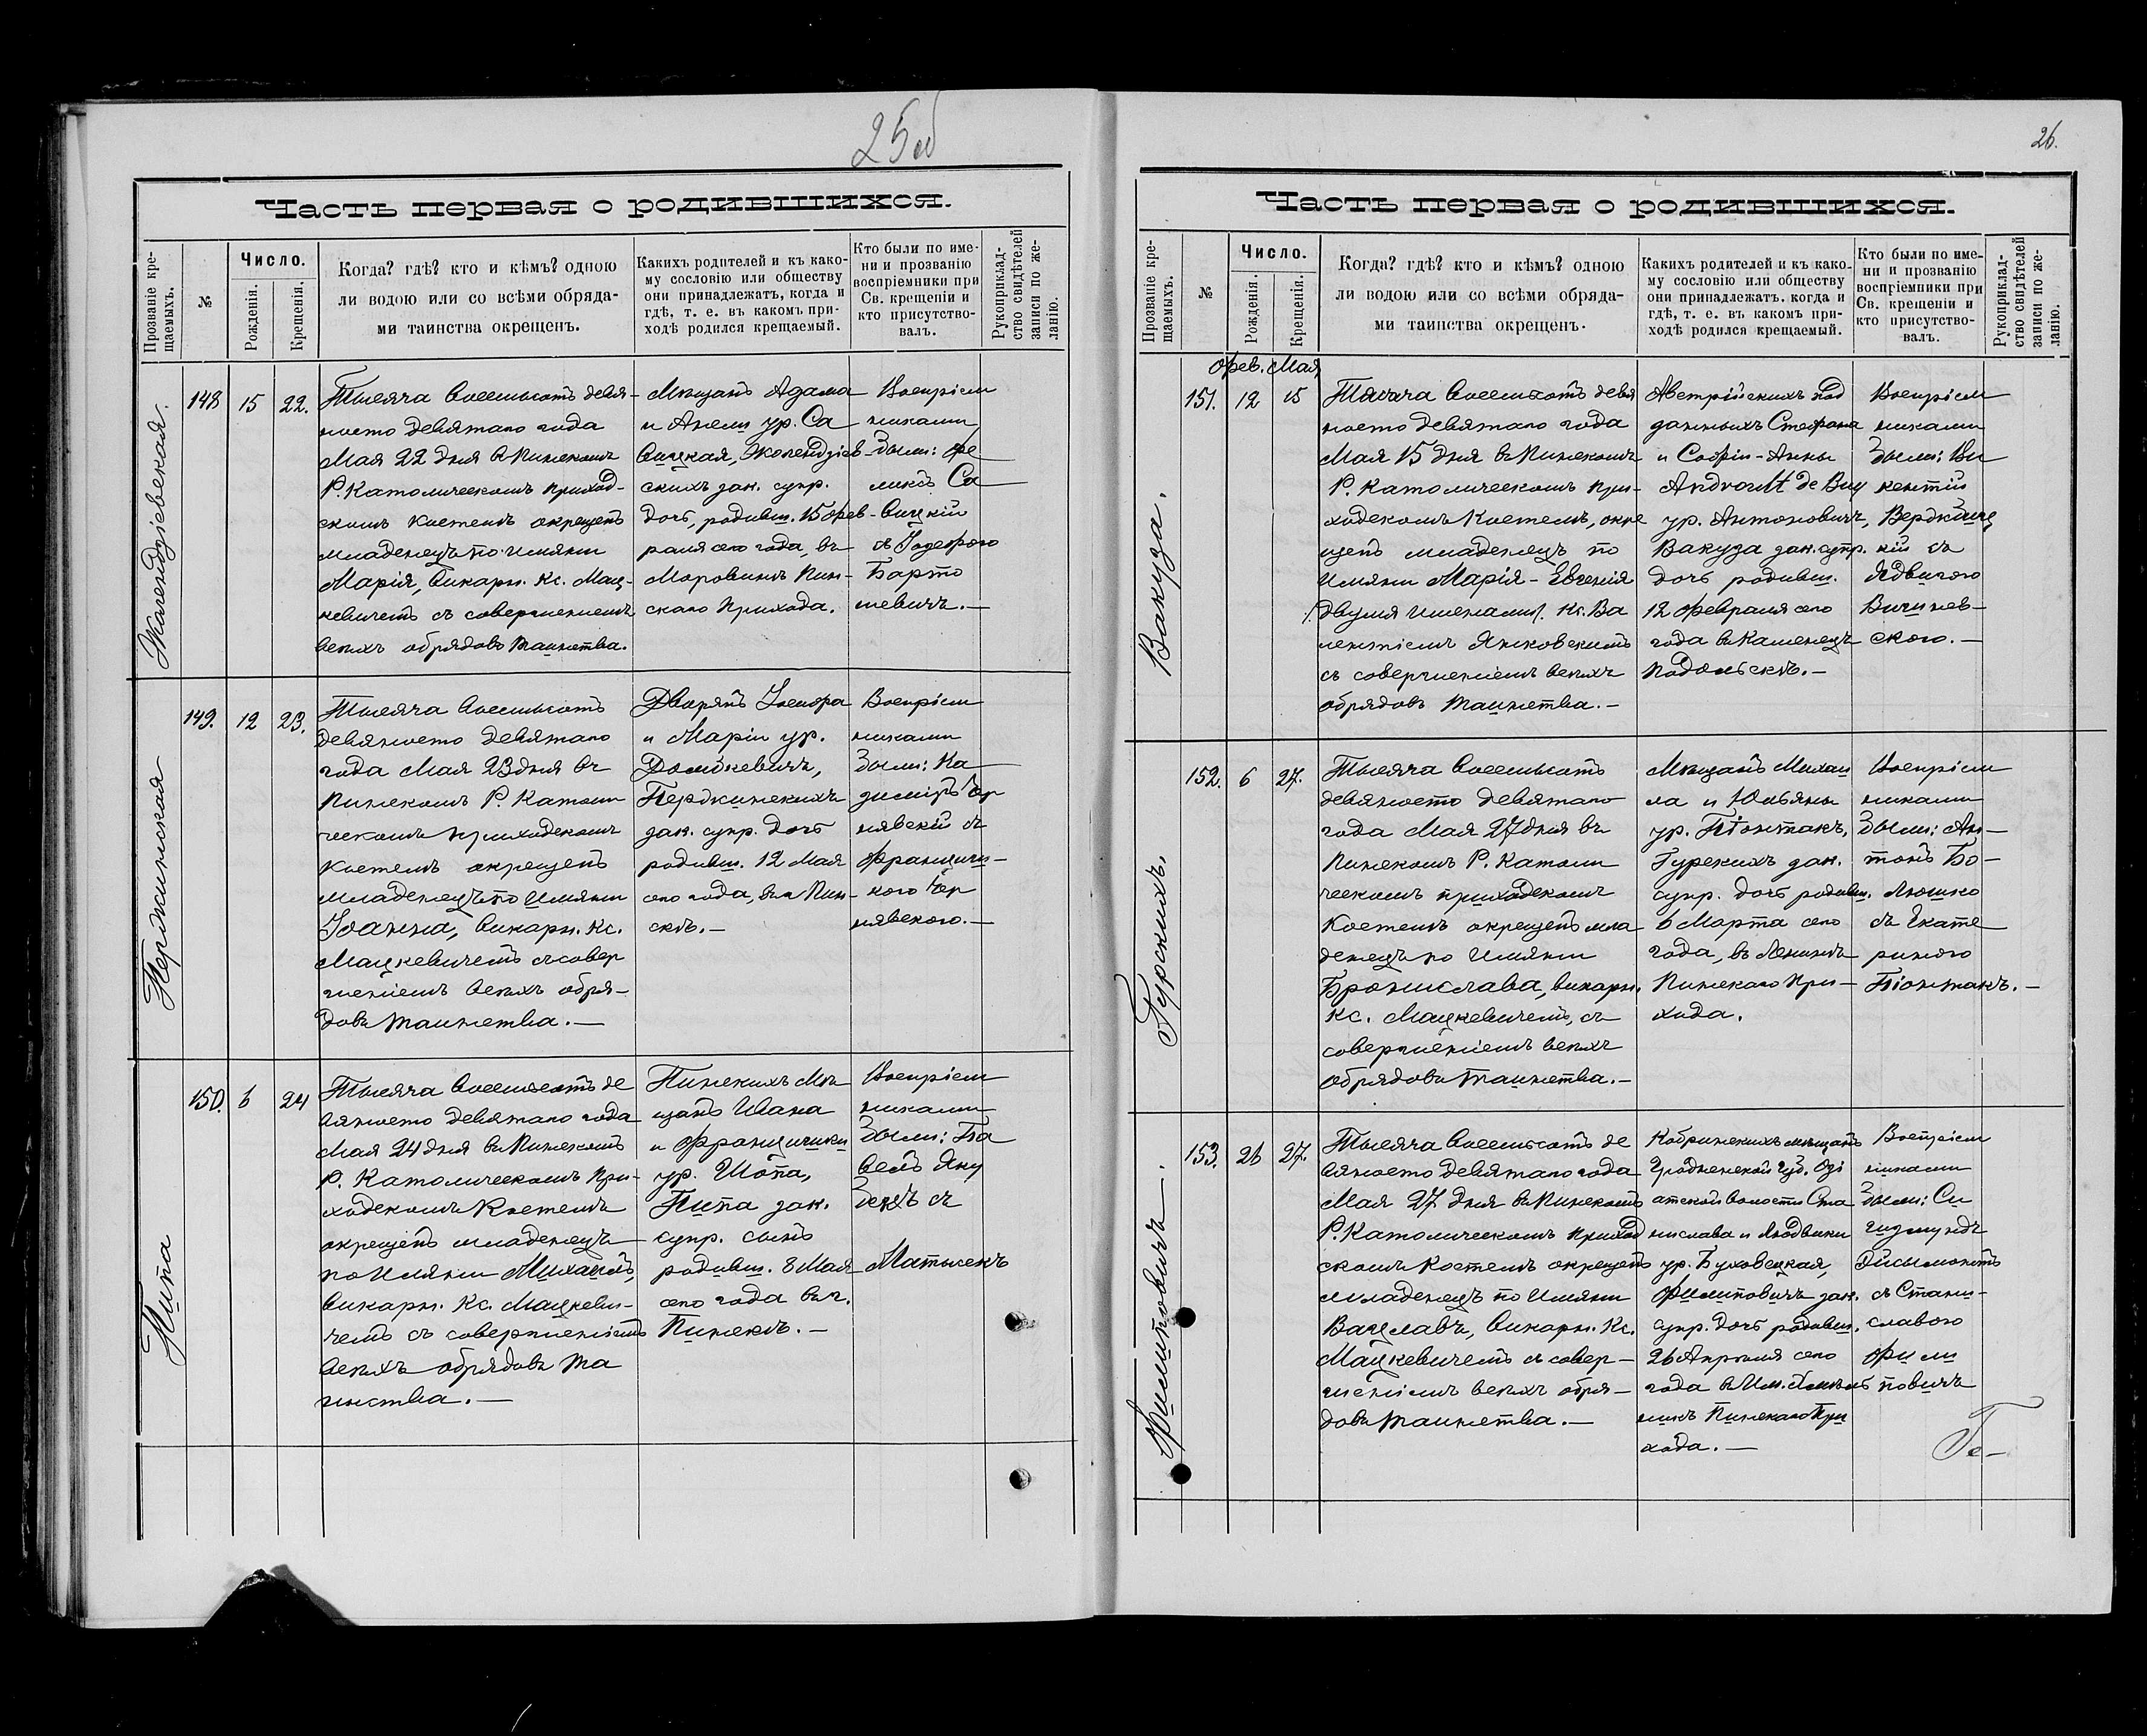 25об
Часть первая о родившихся.
Прозваніе кре-
щаемыхъ.
№
Число.
Рожденія.
Крещенія.
Когда? гдѣ? кто и кѣмъ? одною
ли водою или со всѣми обряда-
ми таинства окрещенъ.
Какихъ родителей и къ како-
му сословію или обществу
они принадлежатъ, когда и
гдѣ, т. е. въ какомъ при-
ходѣ родился крещаемый.
Кто были по име-
ни и прозванію
воспріемники при
Св. крещеніи и
кто присутство-
валъ.
Рукоприклад-
ство свидѣтелей
записи по же-
ланію.
Жолендзіевская.
148
15
22.
Тысяча восемьсотъ девя-
носто девятаго года
Мая 22 дня въ Пинскомъ
Р. Католическомъ приход-
скомъ Костелѣ окрещенъ
младенецъ по имяни
Марія, викарн. Кс. Мац-
кевичемъ съ совершеніемъ
всѣхъ обрядовъ таинства.
Мѣщанъ Адама
и Анели ур. Са
вицкая, Жолендзіев-
скихъ зак. супр.
дочь, родивш. 15 Фев-
раля сего года, въ
Моровинѣ Пин-
скаго прихода.
Воспріем
никами
были: Фе
ликсъ Са
вицкій
съ Іозефою
Барто
шевичъ.—
Пержхинская
149.
12
23.
Тысяча восемьсотъ
девяносто девятаго
года Мая 23 дня въ
Пинскомъ Р. Католи
ческомъ приходскомъ
Костелѣ окрещенъ
младенецъ по имяни
Іоанна, викарн. Кс.
Мацкевичемъ съ совер
шеніемъ всѣхъ обря-
довъ таинства.—
Дворянъ Іосифа
и Маріи ур.
Домбкевичъ,
Пержхинскихъ
зак. супр. дочь
родивш. 12 Мая
сего года, въ г. Пин-
скѣ.—
Воспріем
никами
были: Ка
зиміръ Чер
нявскій съ
Францишк-
кого Чер
нявского.—
Пипа
150.
6
24
Тысяча восемьсотъ де
вяносто девятаго года
Мая 24 дня въ Пинскомъ
Р. Католическомъ При-
ходскомъ Костелѣ
окрещенъ младенецъ
по имяни Михаилъ,
викарн. Кс. Мацкеви-
чемъ съ совершеніемъ
всѣхъ обрядовъ та
инства.—
Пинскихъ мѣ
щанъ Ивана
и Францишки
ур. Шопа,
Пипа зак.
супр. сынъ
родивш. 8 Мая
сего года въ г.
Пинскѣ.—
Воспріем
никами
были: Па
велъ Яку
бекъ съ
Матысекъ
26.
Часть первая о родившихся.
Прозваніе кре-
щаемыхъ.
№
Число.
Рожденія.
Крещенія.
Когда? гдѣ? кто и кѣмъ? одною
ли водою или со всѣми обряда-
ми таинства окрещенъ.
Какихъ родителей и къ како-
му сословію или обществу
они принадлежатъ. когда и
гдѣ, т. е. въ какомъ при-
ходѣ родился крещаемый.
Кто были по име-
ни и прозванію
воспріемники при
Св. крещеніи и
кто присутство-
валъ.
Рукоприклад-
ство свидѣтелей
записи по же-
ланію.
Фев.
Мая
Вакуза.
151.
12
15
Тысяча восемьсотъ девя
носто девятаго года
Мая 15 дня въ Пинскомъ
Р. Католическомъ при-
ходскомъ Костелѣ, окре
щенъ младенецъ по
имяни Марія-Евгенія
/. двумя именами/. Кс. Ва
лентіемъ Янковскимъ
съ совершеніемъ всѣхъ
обрядовъ таинства.—
Австрійскихъ под
данныхъ Стефана
и Софіи-Анны
Andrault de Buy
ур. Антоновичъ,
Вакуза зак. супр.
дочь родивш.
12 Февраля сего
года въ Каменецъ
Подольскѣ.—
Воспріем
никами
были: Ви
кентій
кій съ
Ядвигого
Вичинев-
ского.—
Гурскихъ.
152.
6
27.
Тысяча восемьсотъ
девяносто девятаго
года Мая 27 дня въ
Пинскомъ Р. Католи
ческомъ приходскомъ
Костелѣ окрещенъ мла
денецъ по имяни
Бронислава, викарн.
Кс. Мацкевичемъ, съ
совершеніемъ всѣхъ
обрядовъ таинства.—
Мѣщанъ Михаи
ла и Юльяны
ур. Піонтакъ,
Гурскихъ зак.
супр. дочь родивш.
6 Марта сего
года, въ Ленинѣ
Пинскаго при-
хода.
Воспріем
никами
были: Ан-
тонъ Бо-
люшко
съ Екате
риного
Піонтакъ.—
Филиповичъ.
153.
26
27.
Тысяча восемьсотъ де
вяносто девятаго года
Мая 27 дня въ Пинскомъ
Р. Католическомъ приход
скомъ Костелѣ окрещенъ
младенецъ по имяни
Вацлавъ, викарн. Кс.
Мацкевичемъ съ совер-
шеніемъ всѣхъ обря-
довъ таинства.—
Кобринскихъ мѣщанъ
Гродненской Губ.
волости Ста
нислава и Людвики
ур. Буховецкая,
Филиповичъ зак.
супр. дочь родивш.
26 Апрѣля сего
года въ Им.
Пинскаго При
хода.—
Воспріем
никами
были: Си
гизмундъ
Эйсымонтъ
съ Стани-
славого
Фили
повичъ
Ге-